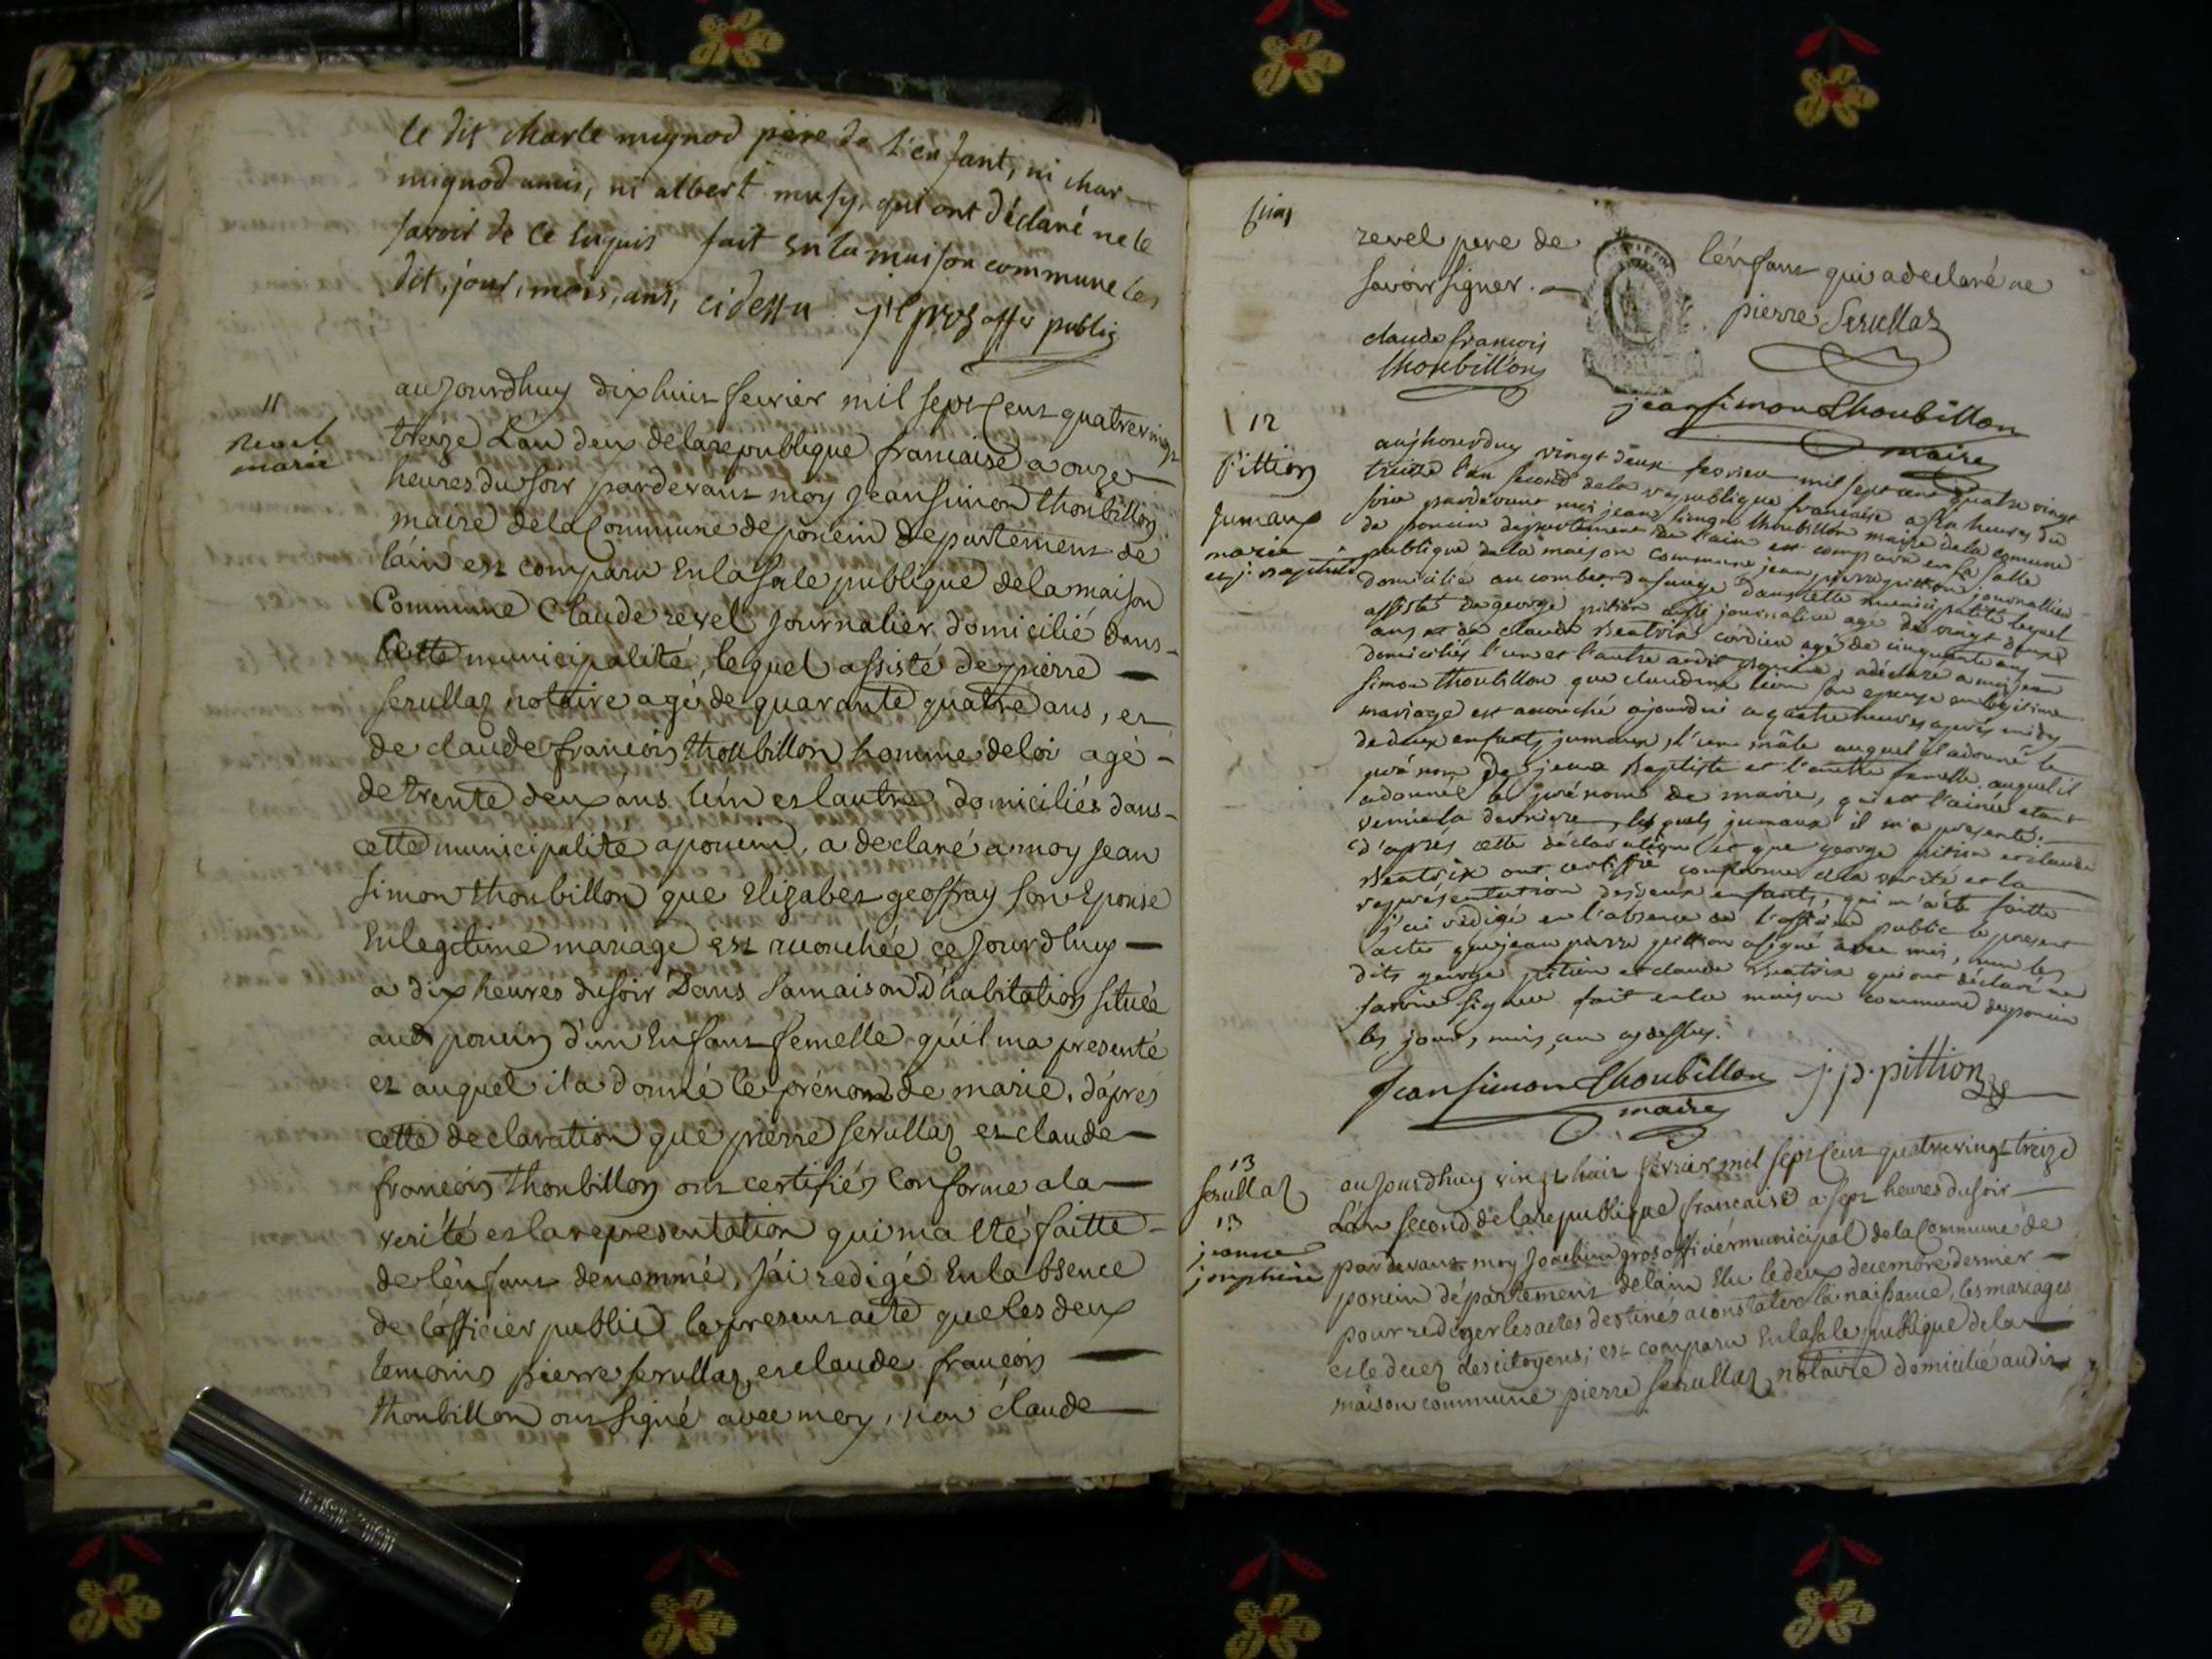 le dit charle mignod père de l'enfant, ni char
mignod amis, ni albert musy, qui ont déclaré ne le
savoir de ce enquis fait en la maison commune les
dit, jour, mois, ans, ci dessu j'h gros offer public
11
revel
marie
aujourdhuy dixhuit fevrier mil sept cent quatrevingt
treize L'an deux de la republique francaise a onze
heures du soir pardevant moy Jean Simon thoubillon
maire de la Commune de poncin departement de
l'ain est comparu en la sale publique de la maison
Commune Claude revel journalier domicilié dans
Cette municipalité, lequel assisté de pierre
serullaz notaire agé de quarante quatre ans, et
de claude françois thoubillon homme de loi agé
de trente deux ans l'un et lautre domiciliés dans
cette municipalité a poncin, a declaré a moy jean
simon thoubillon que Elizabet geoffray son Epouse
En legitime mariage est accouchée ce jourdhuy
a dix heures du soir Dans sa maison d'habitation située
audt poncin d'un Enfant femelle qu'il ma presenté
et auquel il a donné le prénom de marie. d'aprés
cette declaration que pierre serullaz et claude
francois thoubillon ont certifiés Conforme a la
verité et la representation qui ma eté faitte
de l'enfant dénommé, j'ai redigé En labsence
de l'officier public le present acte que les deux
temoins pierre serullaz et claude francois
thoubillon ont signé avec moy, non claude
revel pere de l'énfant qui a declaré ne
savoir signer. pierre Serullaz
claude francois
thoubillon
jean simon thoubillon
maire
12
Pittion
Jumaux
marie
et j. baptiste
aujhourduy vingt deux fevrier mil sept cent quatre vingt
treize l'an second de la republique francaise a six heures du
soir pardevant moi jean simon thoubillon maire de la comune
de poncin departement de l'ain est comparu en la salle
publique de la maison commune jean pierre pittion journallier
domicilié au combet dans cette municipalité lequel
assisté de george pittion aussi journalier agé de vingt deux
ans et de claude Beatrix cordier agé de cinquante ans
domiciliés l'un et l'autre audit poncin, a déclaré a moi jean
simon thoubillon que claudine son epouse en legitime
mariage est accouché ajourdui a quatre heures après midy
de deux enfants jumaux, l'un mâle auquel il a donné le
prénom de jean Baptiste et l'autre femelle auquel il
a donné le prénom de marie, qui est l'ainée etant
venue la derniere, les quels jumaux il m'a presenté.
d'après cette déclaration et que george pittion et claude
Beatrix ont certiffié conforme a la verité et la
représentation des deux enfants, qui m'a été faitte
j'ai rédigé en l'absence de l'officier public le present
acte que jean pierre pittion a signé avec moi, non les
dits george pittion et claude Beatrix qui ont déclaré ne
savoir signer fait en la maison commune de poncin
les jour, mois, an cy dessus.
Jean Simon thoubillon j. p. pittion
maire
13
serullaz
13
jeanne
josephine
aujourdhuy vingt huit fevrier mil sept cent quatrevingt treize
L'an second de la republique francaise a sept heures du soir
pardevant moy Joachim gros officier municipal de la Commune de
poncin département de lain Elu le deux decembre dernier
pour rediger les actes destinés a constater la naissance, les mariages
et le decez des citoyens; est comparu En la sale publique de la
maison commune pierre serullaz notaire domicilié audit